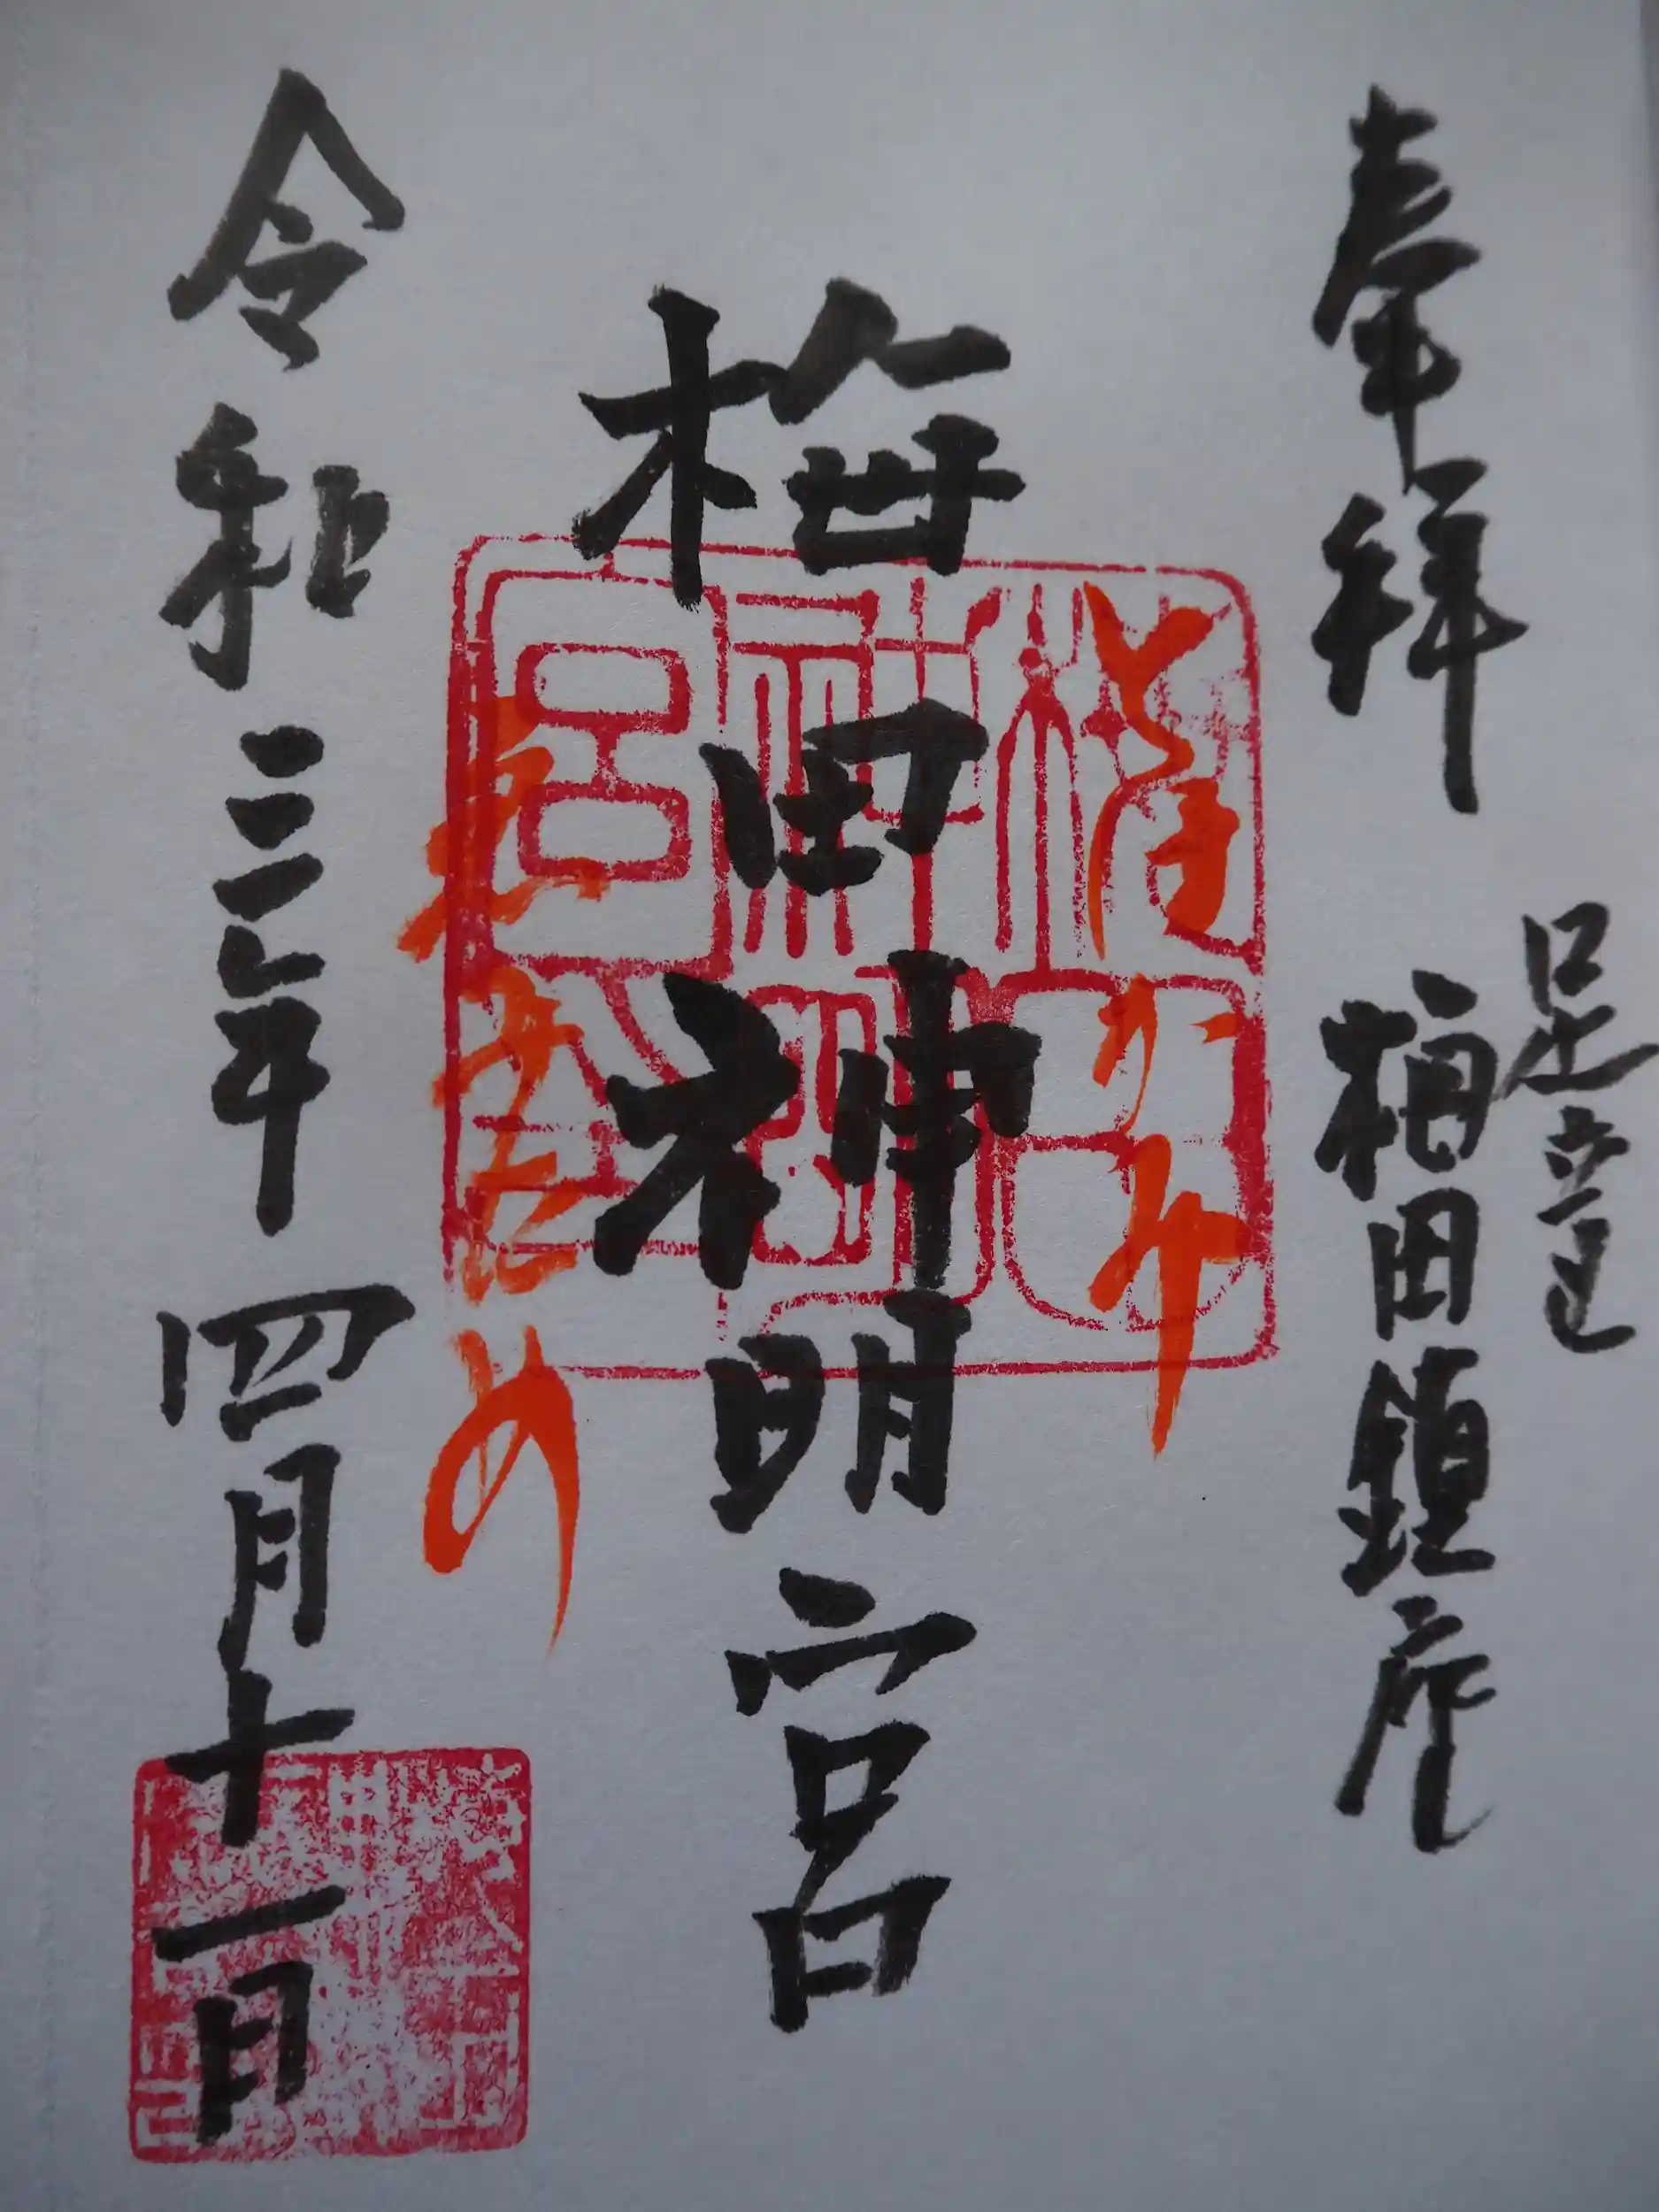 奉拝
足立
梅田鎮座
とほかみ
梅田神明宮
みため
令和三年四月十一日
梅田
神明
宮